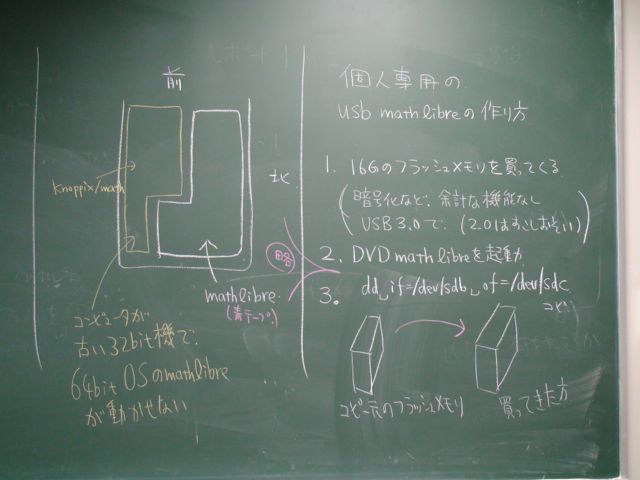 前
Knoppix/math
北
mathlibre
(青テープ)
コンピュータが
古い32bit機で
64bit OSのmathlibre
が動かせない
個人専用の
usb mathlibreの作り方
1. 16Gのフラッシュメモリを買ってくる
(暗号化など、余計な機能なし
USB3.0で. (2.0はすこしおそい))
2. DVD mathlibreを起動
3. dd␣if=/dev/sdb␣of=/dev/sdc
コピー元のフラッシュメモリ
買ってきた方